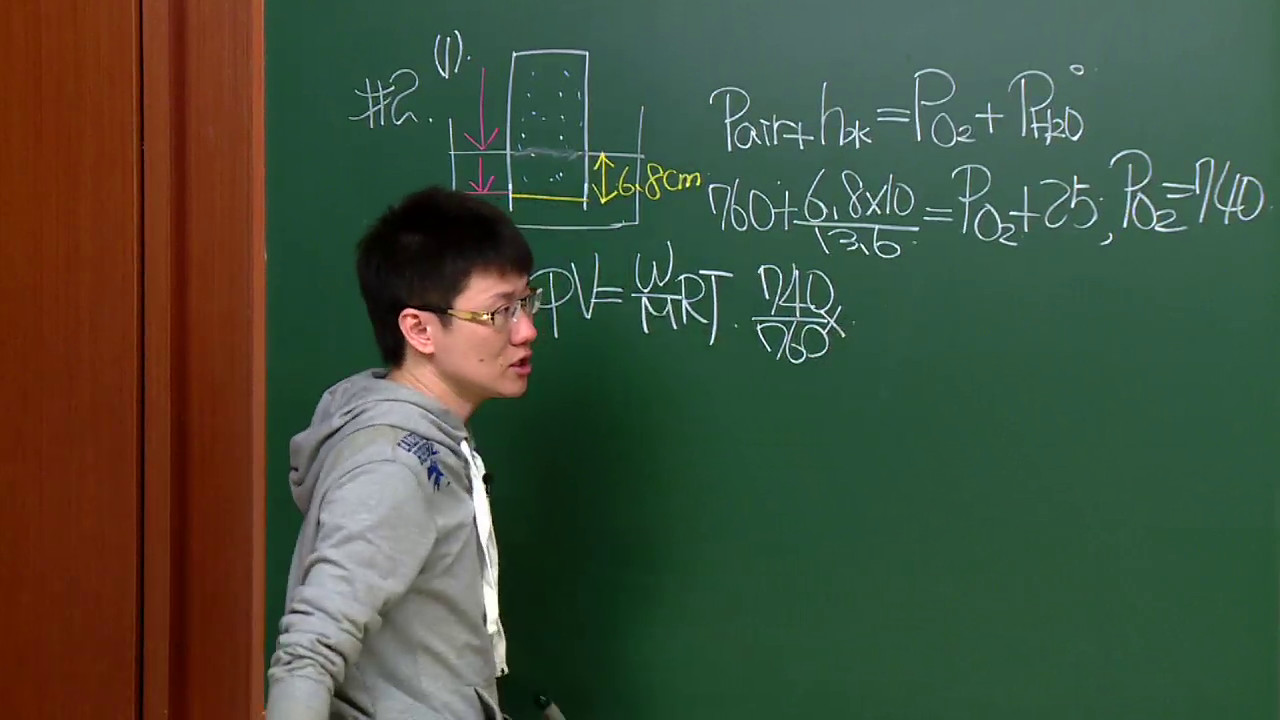 #2. (1).
6.8cm
Pair + h水 = PO₂ + P°H₂O
760 + 6.8×10/13.6 = PO₂ + 25, PO₂ = 740
PV = W/M RT. 740/760 ×